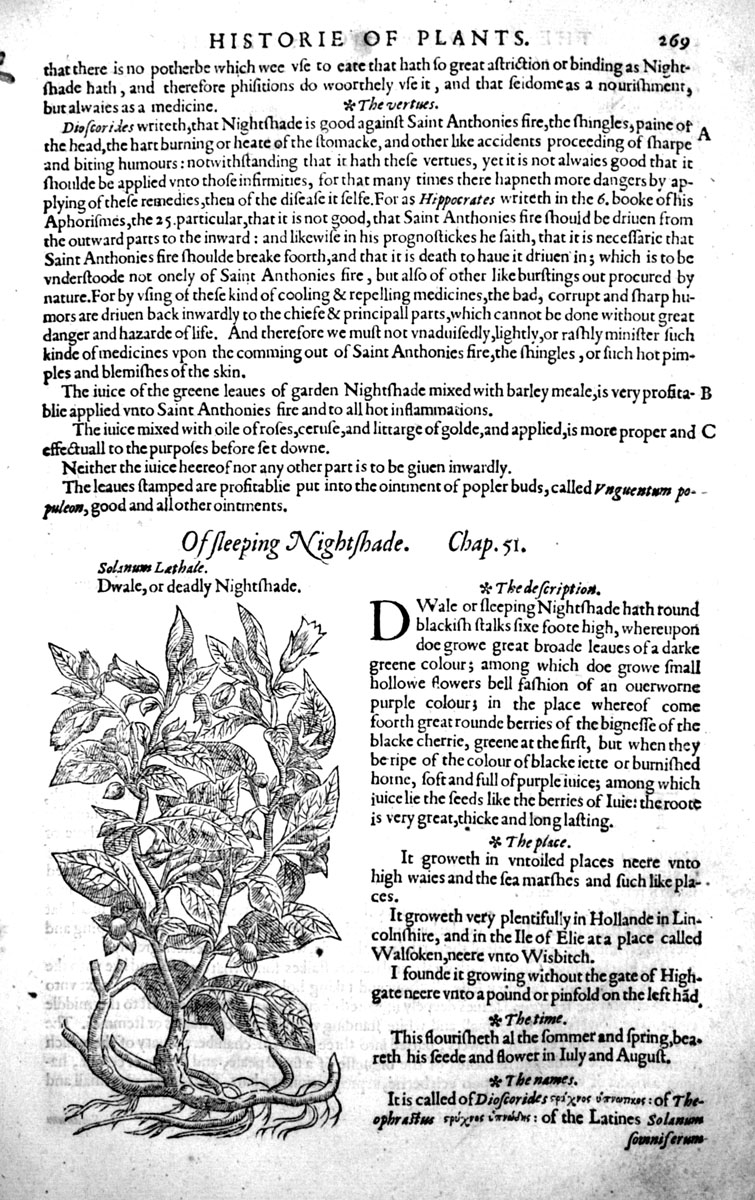 HISTORIE OF PLANTS. 269
that there is no potherbe which wee vſe to eate that hath ſo great aſtriction or binding as Night-
ſhade hath, and therefore phiſitions do woorthely vſe it, and that ſeldome as a nouriſhment,
but alwaies as a medicine. ✻ The vertues.
Dioſcorides writeth, that Nightſhade is good againſt Saint Anthonies fire, the ſhingles, paine of A
the head, the hart burning or heate of the ſtomacke, and other like accidents proceeding of ſharpe
and biting humours: notwithſtanding that it hath theſe vertues, yet it is not alwaies good that it
ſhoulde be applied vnto thoſe infirmities, for that many times there hapneth more dangers by ap-
plying of theſe remedies, then of the diſeaſe it ſelfe. For as Hippocrates writeth in the 6. booke of his
Aphoriſmes, the 25. particular, that it is not good, that Saint Anthonies fire ſhould be driuen from
the outward parts to the inward: and likewiſe in his prognoſtickes he ſaith, that it is neceſſarie that
Saint Anthonies fire ſhoulde breake foorth, and that it is death to haue it driuen in; which is to be
vnderſtoode not onely of Saint Anthonies fire, but alſo of other like burſtings out procured by
nature. For by vſing of theſe kind of cooling & repelling medicines, the bad, corrupt and ſharp hu-
mors are driuen back inwardly to the chiefe & principall parts, which cannot be done without great
danger and hazarde of life. And therefore we muſt not vnaduiſedly, lightly, or raſhly miniſter ſuch
kinde of medicines vpon the comming out of Saint Anthonies fire, the ſhingles, or ſuch hot pim-
ples and blemiſhes of the skin.
The iuice of the greene leaues of garden Nightſhade mixed with barley meale, is very profita- B
blie applied vnto Saint Anthonies fire and to all hot inflammations.
The iuice mixed with oile of roſes, ceruſe, and littarge of golde, and applied, is more proper and C
effectuall to the purpoſes before ſet downe.
Neither the iuice heereof nor any other part is to be giuen inwardly.
The leaues ſtamped are profitablie put into the ointment of popler buds, called Vnguentum po-
puleon, good and all other ointments.
Of ſleeping Nightſhade. Chap. 51.
Solanum Lethale.
Dwale, or deadly Nightſhade.
✻ The deſcription.
DWale or ſleeping Nightſhade hath round
blackiſh ſtalks ſixe foote high, whereupon
doe growe great broade leaues of a darke
greene colour; among which doe growe ſmall
hollowe flowers bell faſhion of an ouerworne
purple colour; in the place whereof come
foorth great rounde berries of the bigneſſe of the
blacke cherrie, greene at the firſt, but when they
be ripe of the colour of blacke iette or burniſhed
horne, ſoft and full of purple iuice; among which
iuice lie the ſeeds like the berries of Iuie: the roote
is very great, thicke and long laſting.
✻ The place.
It groweth in vntoiled places neere vnto
high waies and the ſea marſhes and ſuch like pla-
ces.
It groweth very plentifully in Hollande in Lin-
colnſhire, and in the Ile of Elie at a place called
Walſoken, neere vnto Wisbitch.
I founde it growing without the gate of High-
gate neere vnto a pound or pinfold on the left hād
✻ The time.
This flouriſheth al the ſommer and ſpring, bea-
reth his ſeede and flower in Iuly and Auguſt.
✻ The names.
It is called of Dioſcorides : of The-
ophraſtus : of the Latines Solanum
ſomniferum